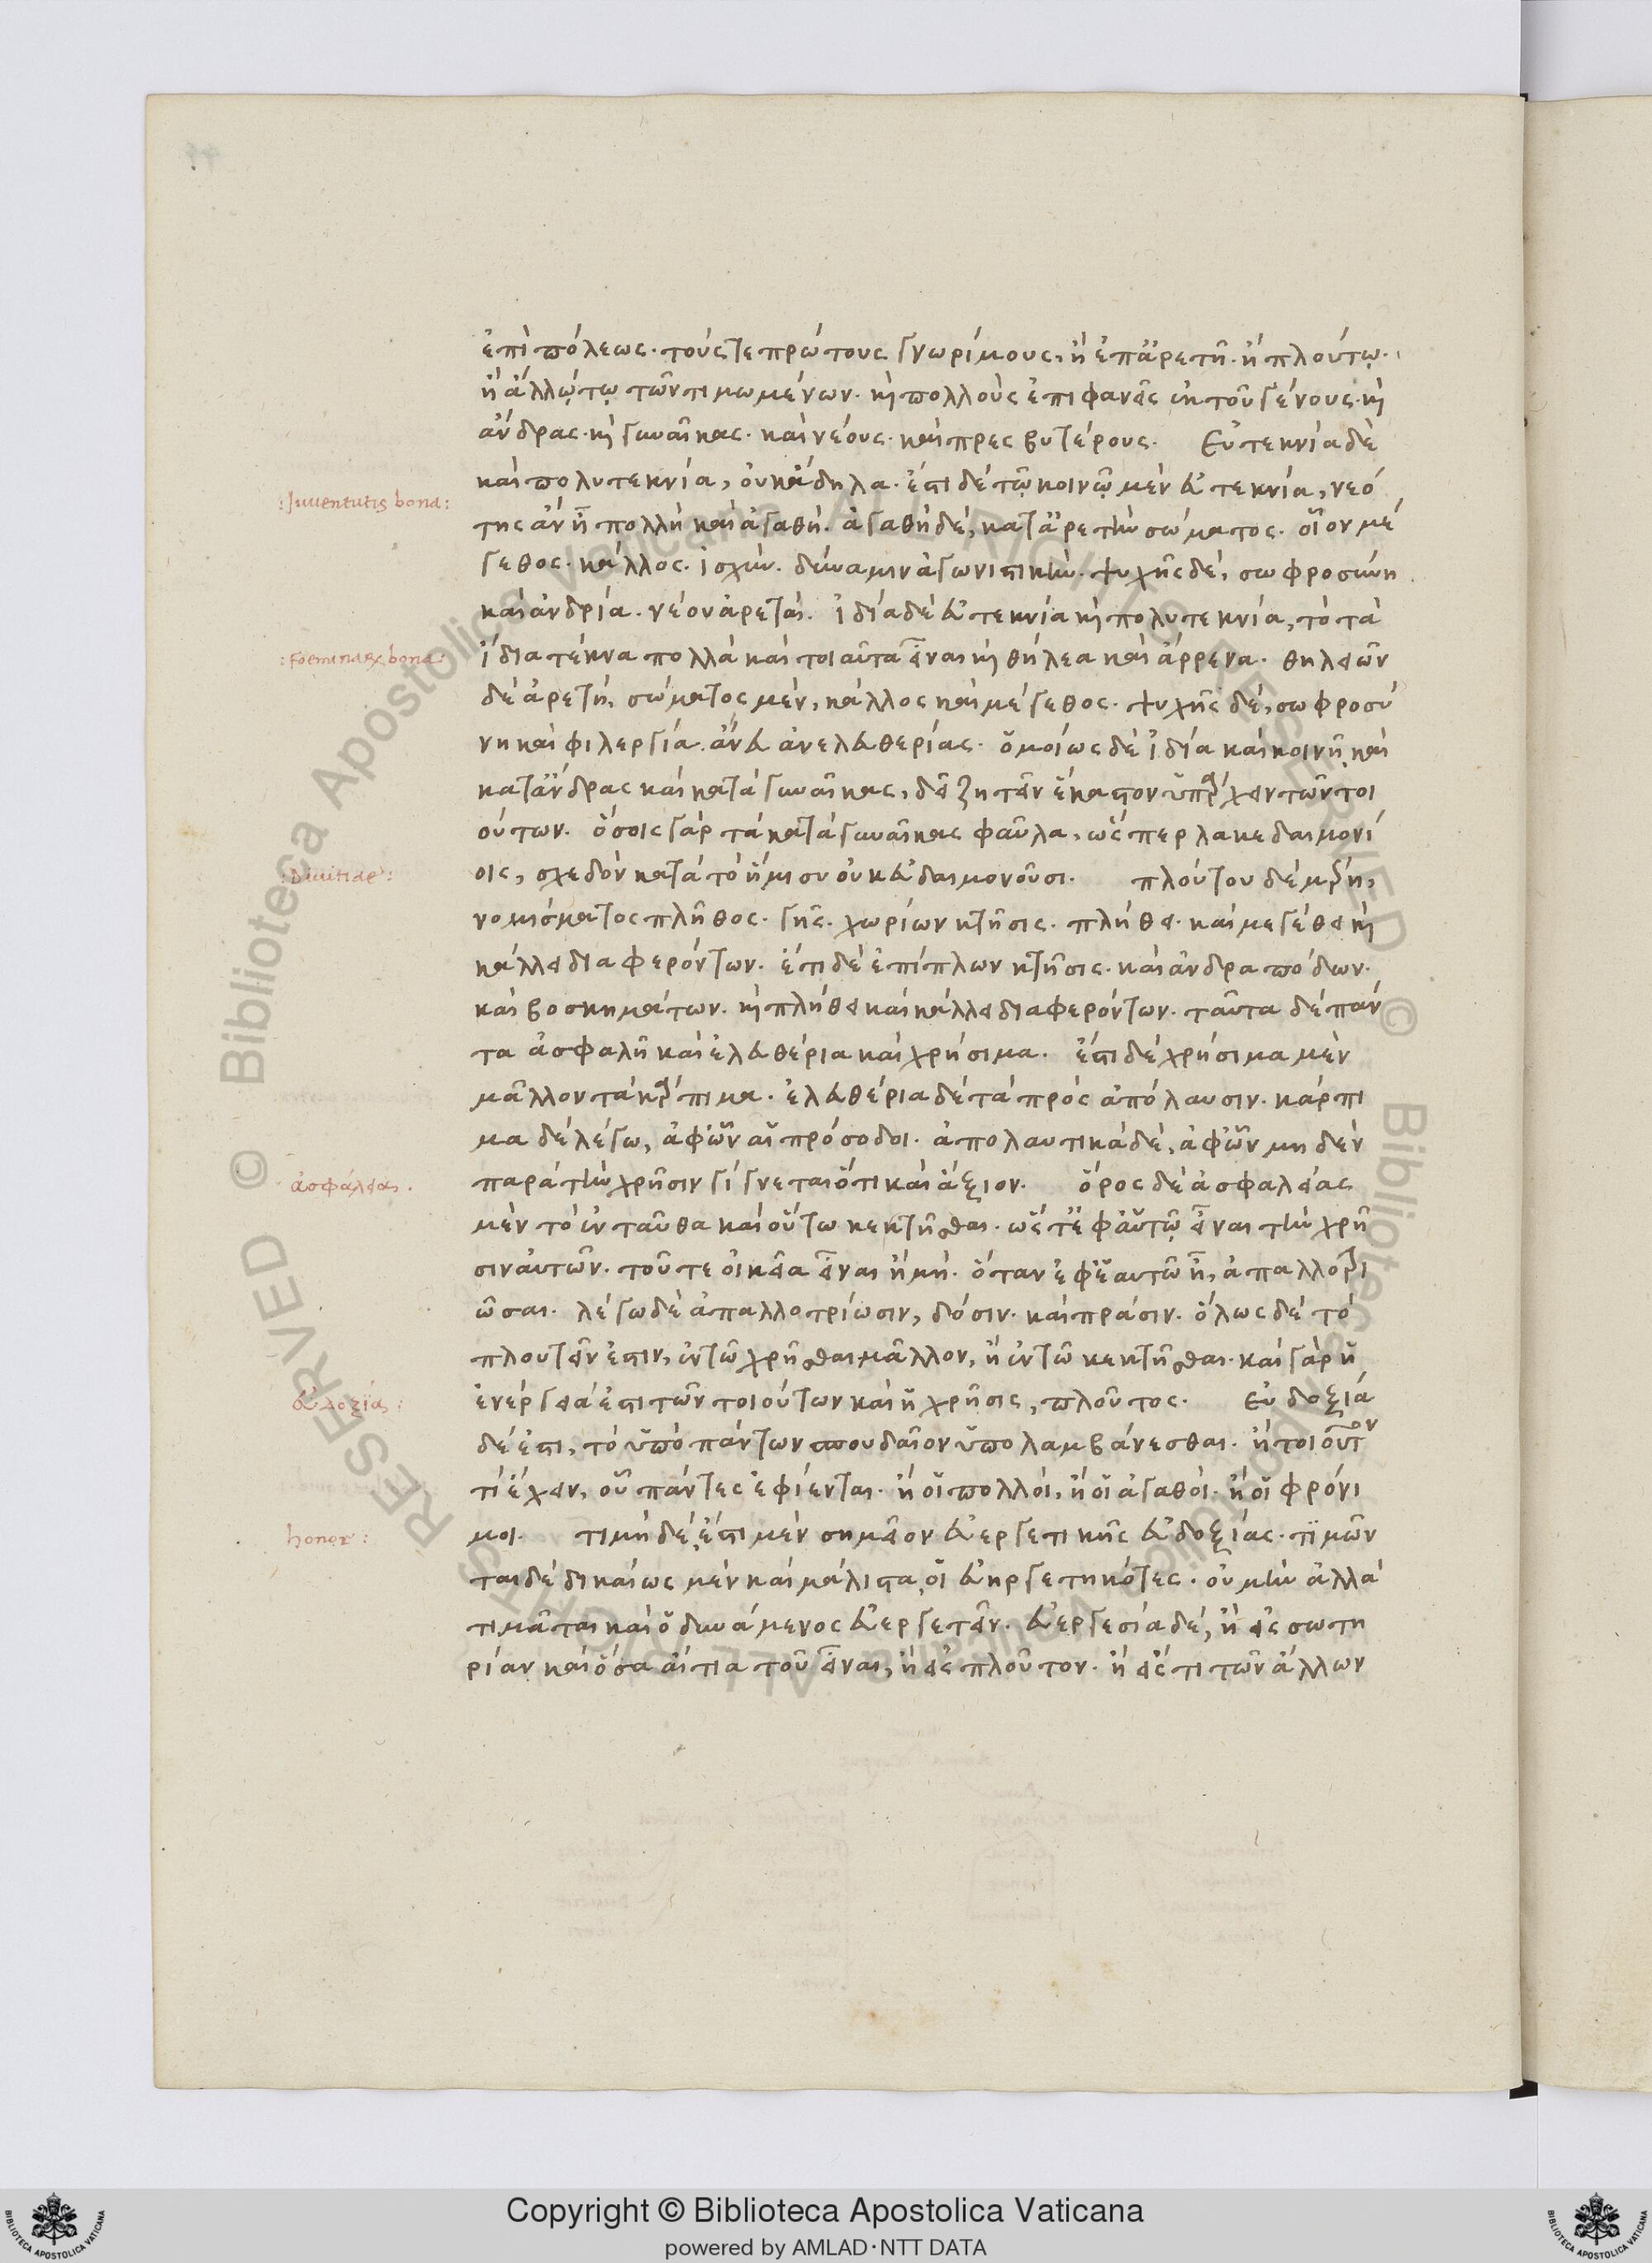 ἐπὶ πόλεως· τούς τε πρώτους γνωρίμους, ἢ ἐπ' ἀρετῇ· ἢ πλούτῳ·
ἢ ἄλλῳ τῳ τῶν τιμωμένων· κὶ πολλοὺς ἐπιφανεῖς ἐκ τοῦ γένους· κὶ
ἄνδρας· κὶ γυναῖκας· καὶ νέους· καὶ πρεσβυτέρους· Εὐτεκνία δὲ
καὶ πολυτεκνία, οὐκ ἄδηλα· ἔστι δὲ τῷ κοινῷ μὲν εὐτεκνία, νεό
:Juuentutis bona:
της ἂν ᾖ πολλὴ καὶ ἀγαθή· ἀγαθὴ δέ, κατ' ἀρετὴν σώματος· οἷον μέ
γεθος· κάλλος· ἰσχύν· δύναμιν ἀγωνιστικήν· ψυχῆς δέ, σωφροσύνη
καὶ ἀνδρία· νέον ἀρεταί· ἰδία δὲ εὐτεκνία κὶ πολυτεκνία, τὸ τὰ
:Foeminaꝝ bona:
ἴδια τέκνα πολλὰ καὶ τοιαῦτα εἶναι κὶ θήλεα καὶ ἄρρενα· θηλειῶν
δὲ ἀρετή, σώματος μέν, κάλλος καὶ μέγεθος· ψυχῆς δέ, σωφροσύ
νη καὶ φιλεργία· ἄνευ ἀνελευθερίας· ὁμοίως δὲ ἰδία καὶ κοινῇ, καὶ
κατ' ἄνδρας καὶ κατὰ γυναῖκας, δεῖ ζητεῖν ἕκαστον ὑπάρχειν τῶν τοι
ούτων· ὅσοις γὰρ τὰ κατὰ γυναῖκας φαῦλα, ὥσπερ λακεδαιμονί
:Diuitiae:
οις, σχεδὸν κατὰ τὸ ἥμισυ οὐκ εὐδαιμονοῦσι· πλούτου δὲ μέρη,
νομίσματος πλῆθος· γῆς· χωρίων κτῆσις· πλήθει· καὶ μεγέθει κὶ
κάλλει διαφερόντων· ἔτι δὲ ἐπίπλων κτῆσις· καὶ ἀνδραπόδων·
καὶ βοσκημάτων· κὶ πλήθει καὶ κάλλει διαφερόντων· ταῦτα δὲ πάν
τα ἀσφαλῆ καὶ ἐλευθέρια καὶ χρήσιμα· ἔστι δὲ χρήσιμα μὲν
μᾶλλον τὰ κάρπιμα· ἐλευθέρια δὲ τὰ πρὸς ἀπόλαυσιν· κάρπι
μα δὲ λέγω, ἀφ' ὧν αἱ πρόσοδοι· ἀπολαυστικὰ δέ, ἀφ' ὧν μηδὲν
ἀσφάλειαι·
παρὰ τὴν χρῆσιν γίγνεται ὅτι καὶ ἄξιον· ὅρος δὲ ἀσφαλείας
μὲν τὸ ἐνταῦθα καὶ οὕτω κεκτῆσθαι· ὥστε ἐφ' αὑτῷ εἶναι τὴν χρῆ
σιν αὐτῶν· τοῦ τε οἰκεῖα εἶναι ἢ μή· ὅταν ἐφ' ἑαυτῶ ᾖ, ἀπαλλοτρι
ῶσαι· λέγω δὲ ἀπαλλοτρίωσιν, δόσιν· καὶ πράσιν· ὅλως δὲ τὸ
πλουτεῖν ἐστιν, ἐν τῶ χρῆσθαι μᾶλλον, ἢ ἐν τῶ κεκτῆσθαι· καὶ γὰρ ἡ
εὐδοξίας:
ἐνέργειά ἐστι τῶν τοιούτων καὶ ἡ χρῆσις, πλοῦτος· Εὐδοξιά
δέ ἐστι, τὸ ὑπὸ πάντων σπουδαῖον ὑπολαμβάνεσθαι· ἢ τοιοῦτόν
τι ἔχειν, οὗ πάντες ἐφίενται· ἢ οἱ πολλοί, ἢ οἱ ἀγαθοί· ἢ οἱ φρόνι
honor:
μοι· τιμὴ δέ, ἐστι μὲν σημεῖον εὐεργετικῆς εὐδοξίας· τιμῶν
ται δὲ δικαίως μὲν καὶ μάλιστα, οἱ εὐηργετηκότες· οὐ μὴν ἀλλὰ
τιμᾶται καὶ ὁ δυνάμενος εὐεργετεῖν· εὐεργεσία δέ, ἢ εἰς σωτη
ρίαν καὶ ὅσα αἴτια τοῦ εἶναι, ἢ εἰς πλοῦτον· ἢ εἴς τι τῶν ἄλλων
© Biblioteca Apostolica Vaticana ALL RIGHTS RESERVED
Copyright © Biblioteca Apostolica Vaticana
powered by AMLAD·NTT DATA